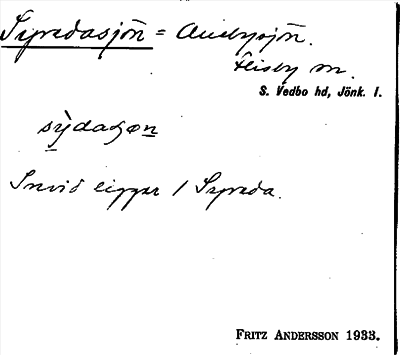 Syredasjön = Anebysjön.
Flisby sn.
S. Vedbo hd, Jönk. l.
sỳdaʃøn
Invid ligger / Syreda.
FRITZ ANDERSSON 1933.